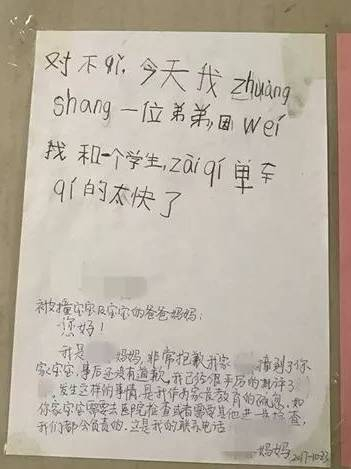 对不qǐ,今天我zhuàng
shang一位弟弟,因wéi
我和一个学生,zài qí单车
qí的太快了
被撞宝宝及宝宝的爸爸妈妈:
您好!
我是 妈妈 非常抱歉,我家 撞到了你
家宝宝,事后还没有道歉,我已经很严厉的批评了
,发生这样的事情,是我作为家长教育的疏忽,如
你家宝宝需要去医院检查或者需要其他进一步检查,
我们都会负责的,这是我的联系电话
妈妈 2017-10.23